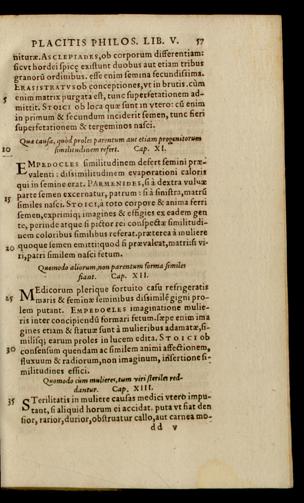 PLACITIS PHILOS. LIB. V. 57
nituræ. ASCLEPIADES, ob corporum differentiam:
sicvt hordei spicę existunt duobus aut etiam tribus
granorū ordinibus. esse enim semina fecundissima.
ERASISTRATVS ob conceptiones, vt in brutis. cùm
5 enim matrix purgata est, tunc superfetationem ad-
mittit. STOICI ob loca quæ sunt in vtero: cū enim
in primum & secundum inciderit semen, tunc fieri
superfetationem & tergeminos nasci.
Qua causa, quòd proles parentum aut etiam progenitorum
10 similitudinem refert. Cap. XI.
EMPEDOCLES similitudinem defert semini præ-
valenti: dissimilitudinem evaporationi caloris
qui in semine erat. PARMENIDES, si à dextra vulvæ
parte semen excernatur, patrum: si à sinistra, matrū
15 similes nasci. STOICI, à toto corpore & anima ferri
semen, exprimiq; imagines & effigies ex eadem gen
te, perinde atque si pictor rei conspectæ similitudi-
nem coloribus similibus referat. præterea à muliere
quoque semen emitti: quod si prævaleat, matri: si vi-
20 ri, patri similem nasci fetum.
Quomodo aliorum, non parentum forma similes
fiant. Cap. XII.
MEdicorum plerique fortuito casu refrigeratis
25 maris & feminæ seminibus dissimilē gigni pro-
lem putant. EMPEDOCLES imaginatione mulie-
ris inter concipiendū formari fetum. sæpe enim ima
gines etiam & statuæ sunt à mulieribus adamatæ, si-
milisq; earum proles in lucem edita. STOICI ob
30 consensum quendam ac similem animi affectionem,
fluxuum & radiorum, non imaginum, insertione si-
militudines effici.
Quomodo cùm mulieres, tum viri steriles red-
dantur. Cap. XIII.
35 STerilitatis in muliere causas medici vtero impu-
tant, si aliquid horum ei accidat. puta vt fiat den
sior, rarior, durior, obstruatur callo, aut carnea mo-
dd v